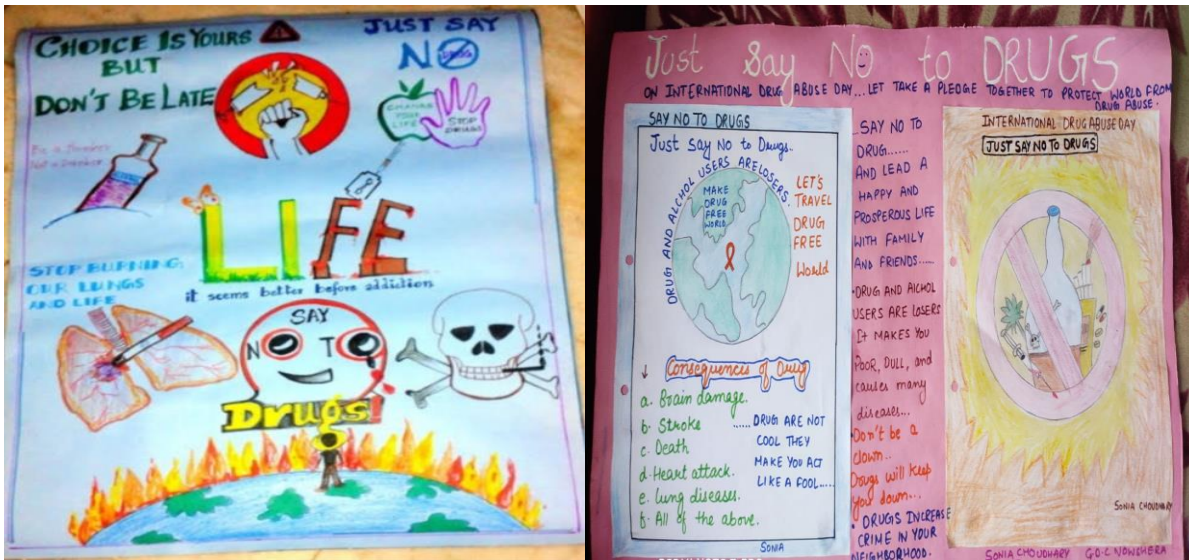 CHOICE IS YOURS
BUT
DON'T BE LATE
JUST SAY
NO
CHANGE
YOUR
LIFE
STOP
DRUGS
LIFE
it seems better before addiction
STOP BURNING
OUR LUNGS
AND LIFE
SAY
NO TO
Drugs!
Just Say NO to DRUGS
ON INTERNATIONAL DRUG ABUSE DAY...LET TAKE A PLEDGE TOGETHER TO PROTECT WORLD FROM
DRUG ABUSE.
SAY NO TO DRUGS
Just Say NO to Drugs..
DRUG AND ALCHOL USERS ARE LOSERS.
MAKE
DRUG
FREE
WORLD
LET'S
TRAVEL
DRUG
FREE
World
Consequences of Drug
a. Brain damage.
b. Stroke
c. Death
d. Heart attack.
e. lung diseases.
f. All of the above.
...... DRUG ARE NOT
COOL THEY
MAKE YOU ACT
LIKE A FOOL.....
SONIA
...SAY NO TO
DRUG......
AND LEAD A
HAPPY AND
PROSPEROUS LIFE
WITH FAMILY
AND FRIENDS.....
•DRUG AND AlCHOL
USERS ARE LOSERS
IT MAKES YOU
POOR, DULL, and
causes many
diseases...
•Don't be a
clown..
Drugs will keep
you down...
• DRUGS INCREASE
CRIME IN YOUR
NEIGHBORHOOD.
INTERNATIONAL DRUG ABUSE DAY
JUST SAY NO TO DRUGS
SONIA CHOUDHARY
SONIA CHOUDHARY G.D.C NOWSHERA